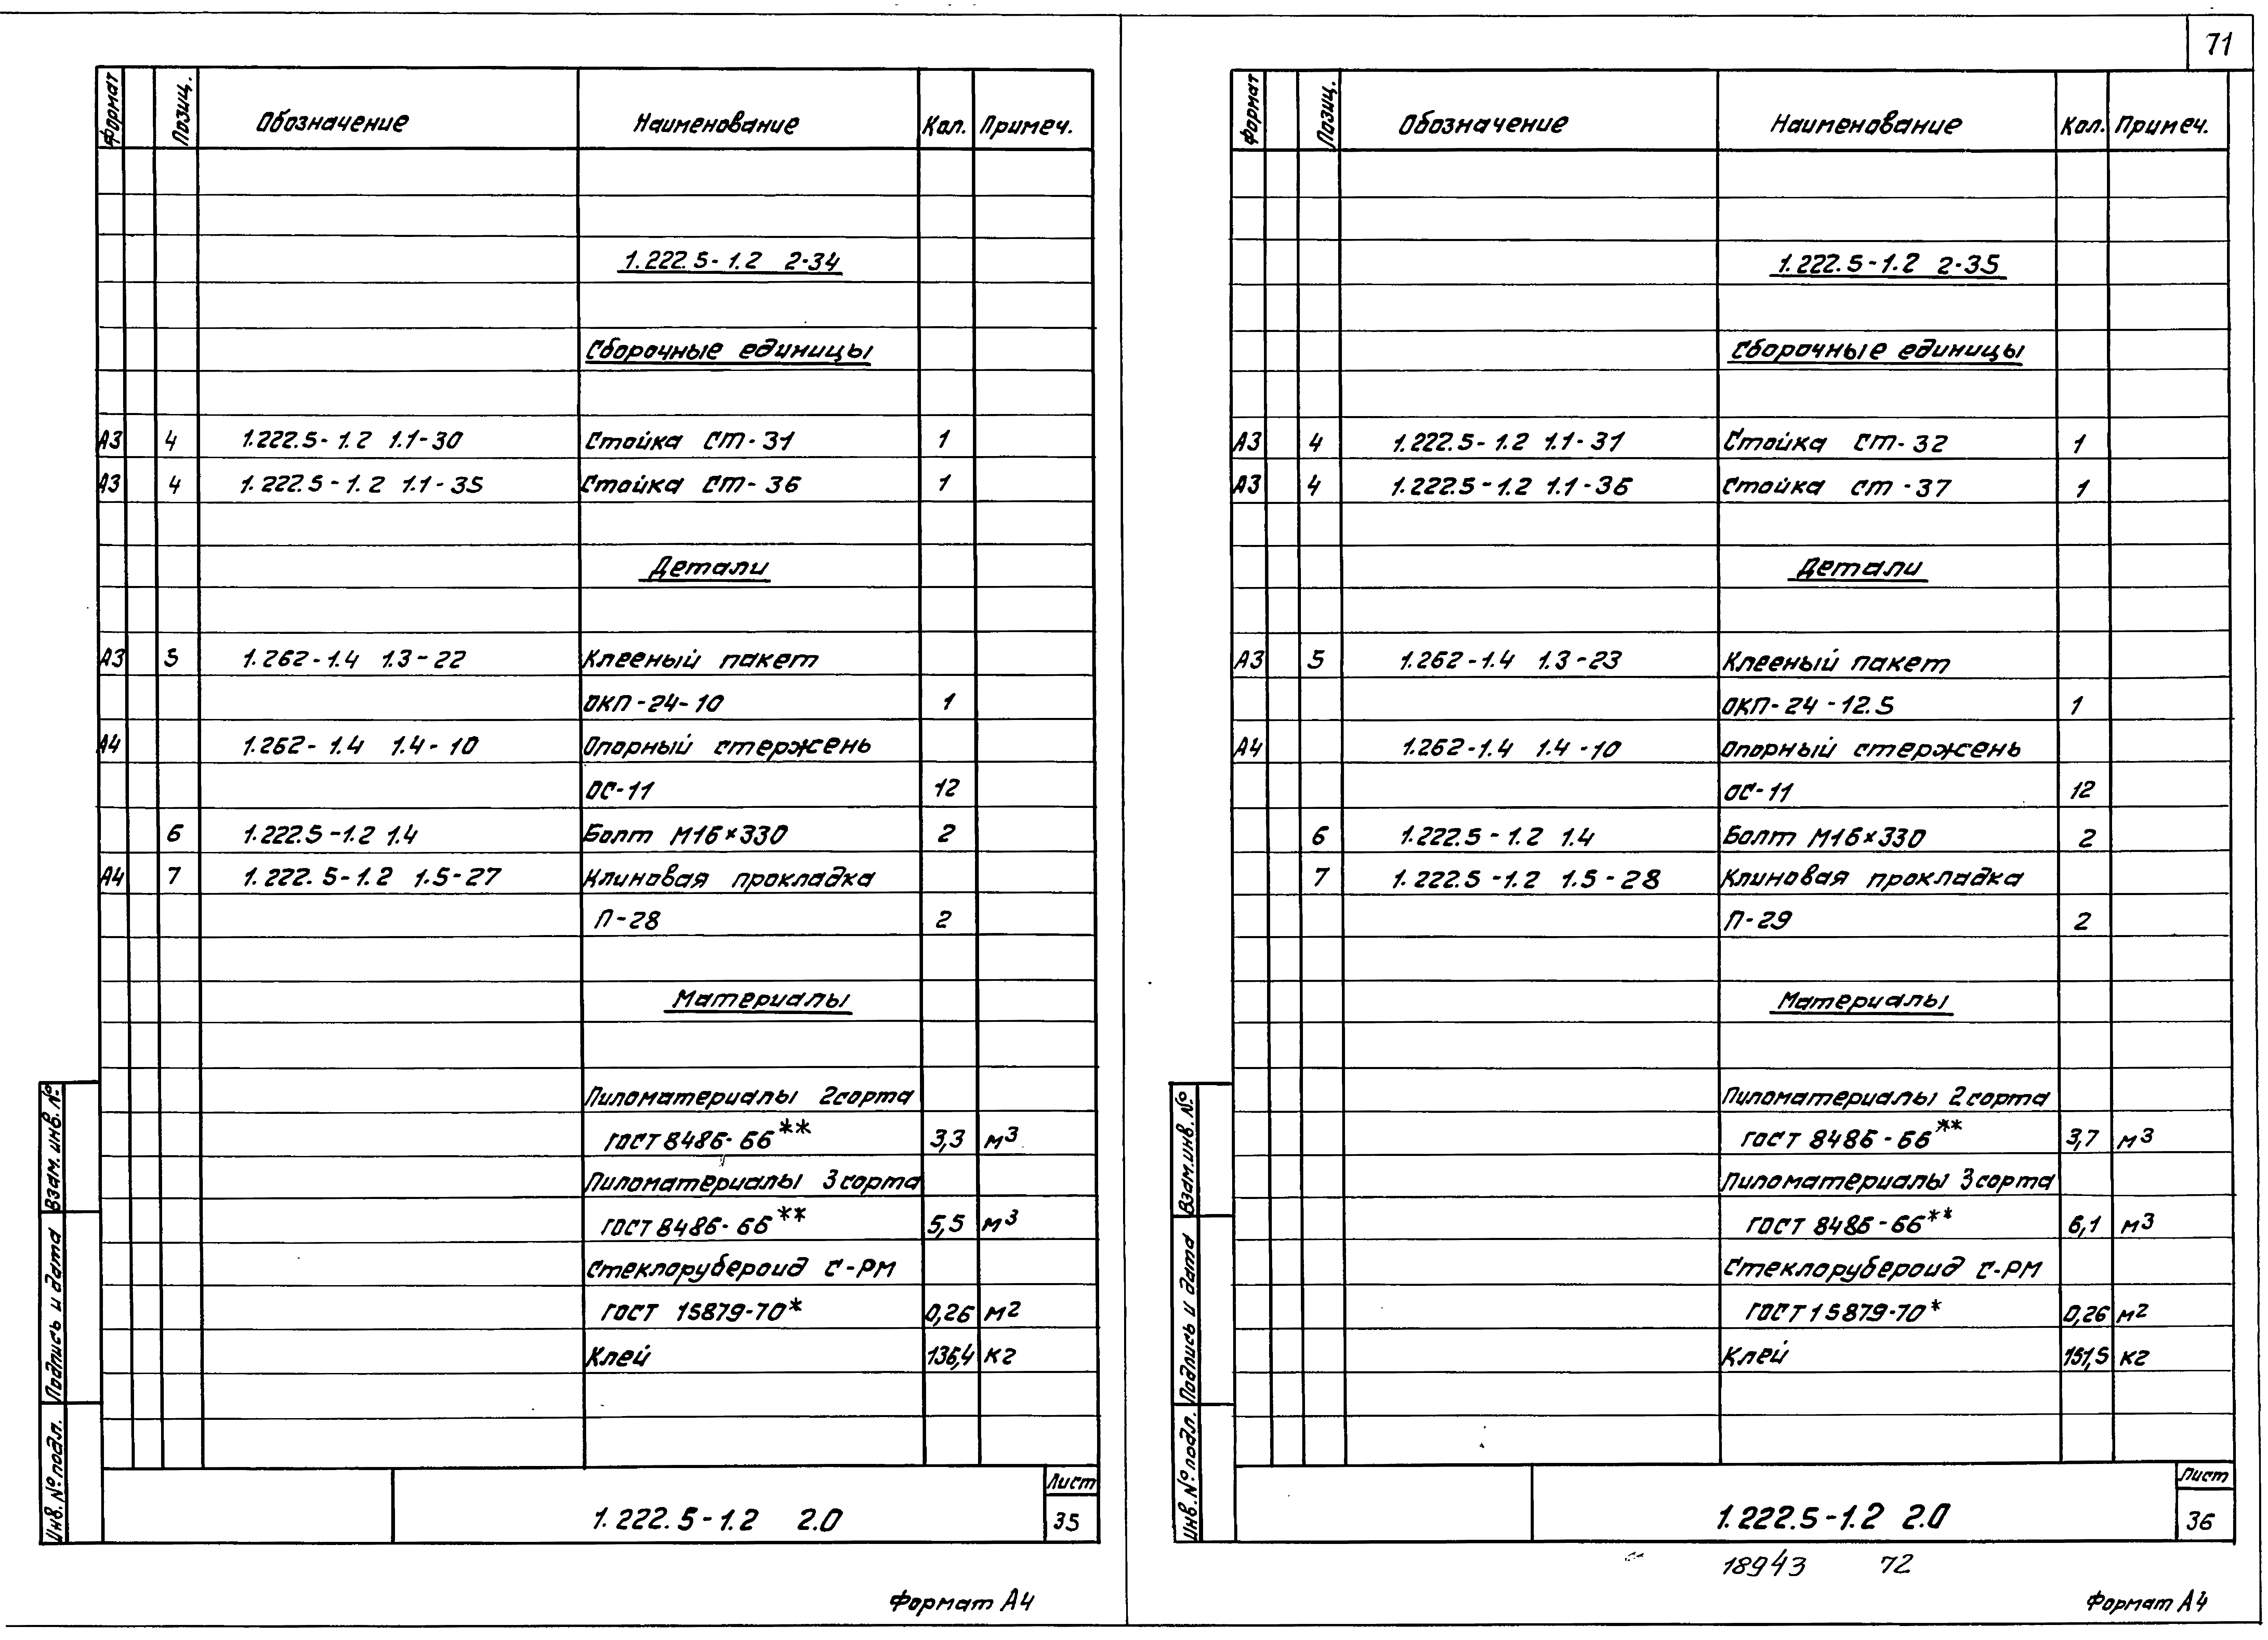 71
Формат Позиц. Обозначение Наименование Кол. Примеч.
1.222.5-1.2 2-34
Сборочные единицы
А3 4 1.222.5-1.2 1.1-30 Стойка СТ-31 1
А3 4 1.222.5-1.2 1.1-35 Стойка СТ-36 1
Детали
А3 5 1.262-1.4 1.3-22 Клееный пакет
ОКП-24-10 1
А4 1.262-1.4 1.4-10 Опорный стержень
ОС-11 12
6 1.222.5-1.2 1.4 Болт М16×330 2
А4 7 1.222.5-1.2 1.5-27 Клиновая прокладка
П-28 2
Материалы
Пиломатериалы 2 сорта
ГОСТ 8486-66** 3,3 м3
Пиломатериалы 3 сорта
ГОСТ 8486-66** 5,5 м3
Стеклорубероид С-РМ
ГОСТ 15879-70* 0,26 м2
Клей 136,4 кг
Инв. № подл. Подпись и дата Взам. инв. №
1.222.5-1.2 2.0
Лист
35
Формат А4
Формат Позиц. Обозначение Наименование Кол. Примеч.
1.222.5-1.2 2-35
Сборочные единицы
А3 4 1.222.5-1.2 1.1-31 Стойка СТ-32 1
А3 4 1.222.5-1.2 1.1-36 Стойка СТ-37 1
Детали
А3 5 1.262-1.4 1.3-23 Клееный пакет
ОКП-24-12.5 1
А4 1.262-1.4 1.4-10 Опорный стержень
ОС-11 12
6 1.222.5-1.2 1.4 Болт М16×330 2
7 1.222.5-1.2 1.5-28 Клиновая прокладка
П-29 2
Материалы
Пиломатериалы 2 сорта
ГОСТ 8486-66** 3,7 м3
Пиломатериалы 3 сорта
ГОСТ 8486-66** 6,1 м3
Стеклорубероид С-РМ
ГОСТ 15879-70* 0,26 м2
Клей 151,5 кг
Инв. № подл. Подпись и дата Взам. инв. №
1.222.5-1.2 2.0
Лист
36
18943 72
Формат А4